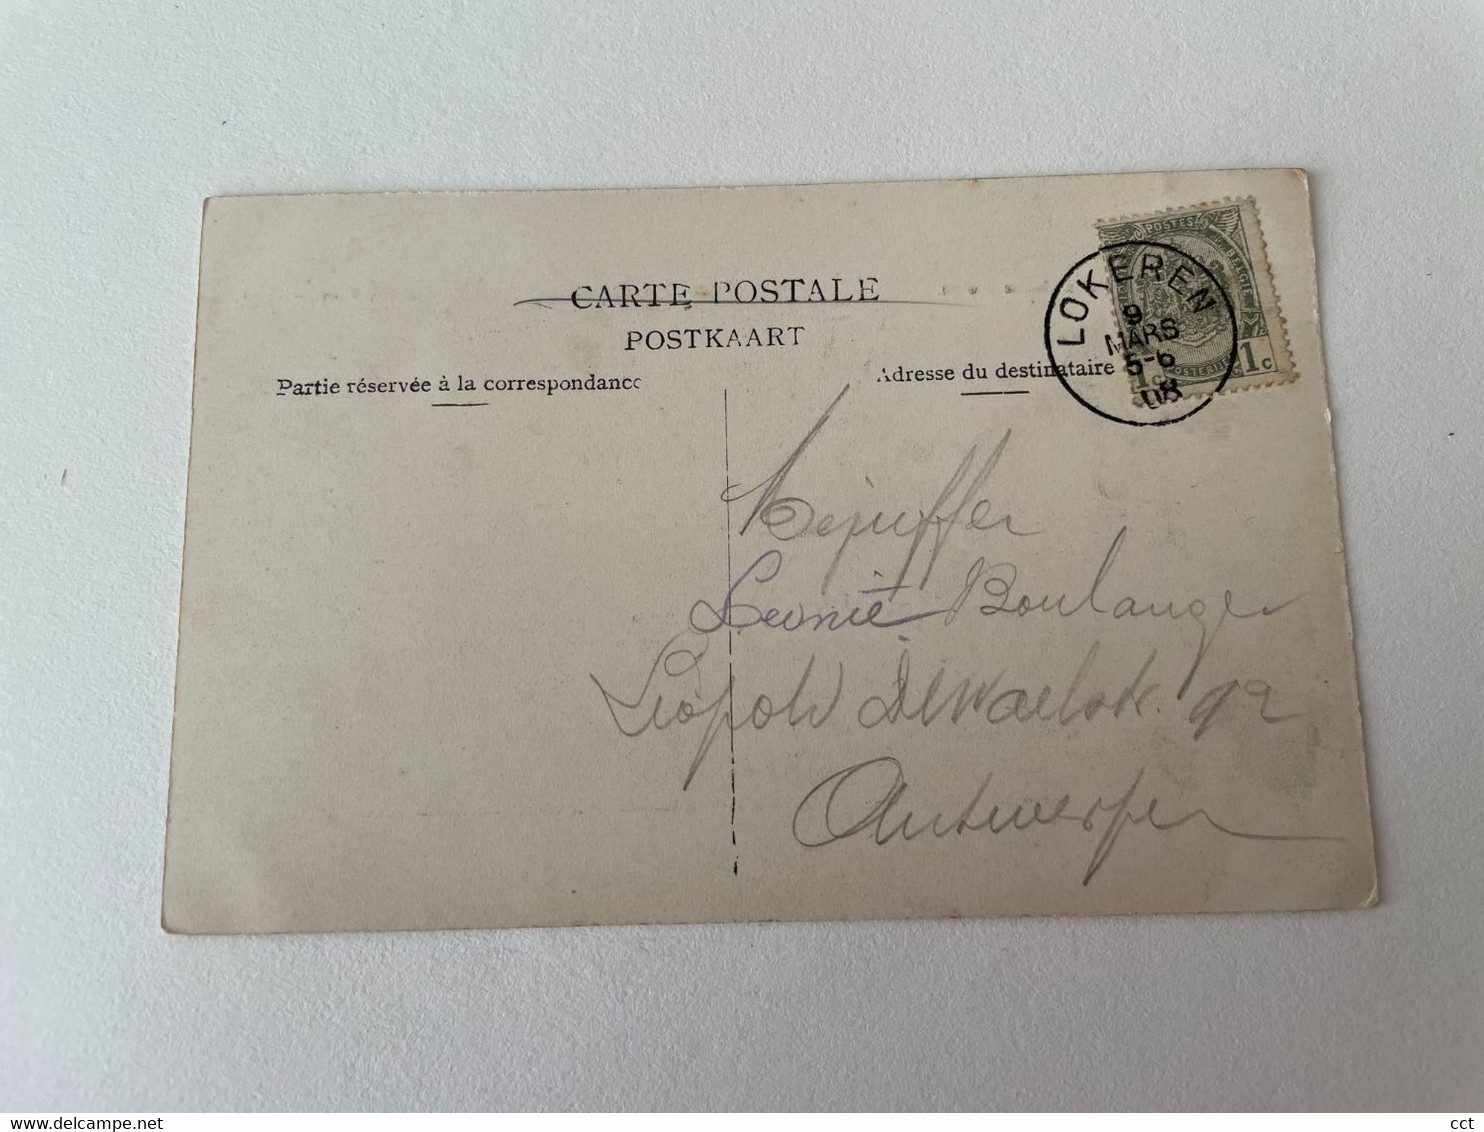 CARTE POSTALE
POSTKAART
Partie réservée à la correspondance
Adresse du destinataire
LOKEREN
9
MARS
5-6
08
POSTES
BELGIQUE
1c
1c
POSTERIJEN
Mejuffer
Leonie Boulanger
Leopold Dewaelstr. 92
Antwerpen
cct